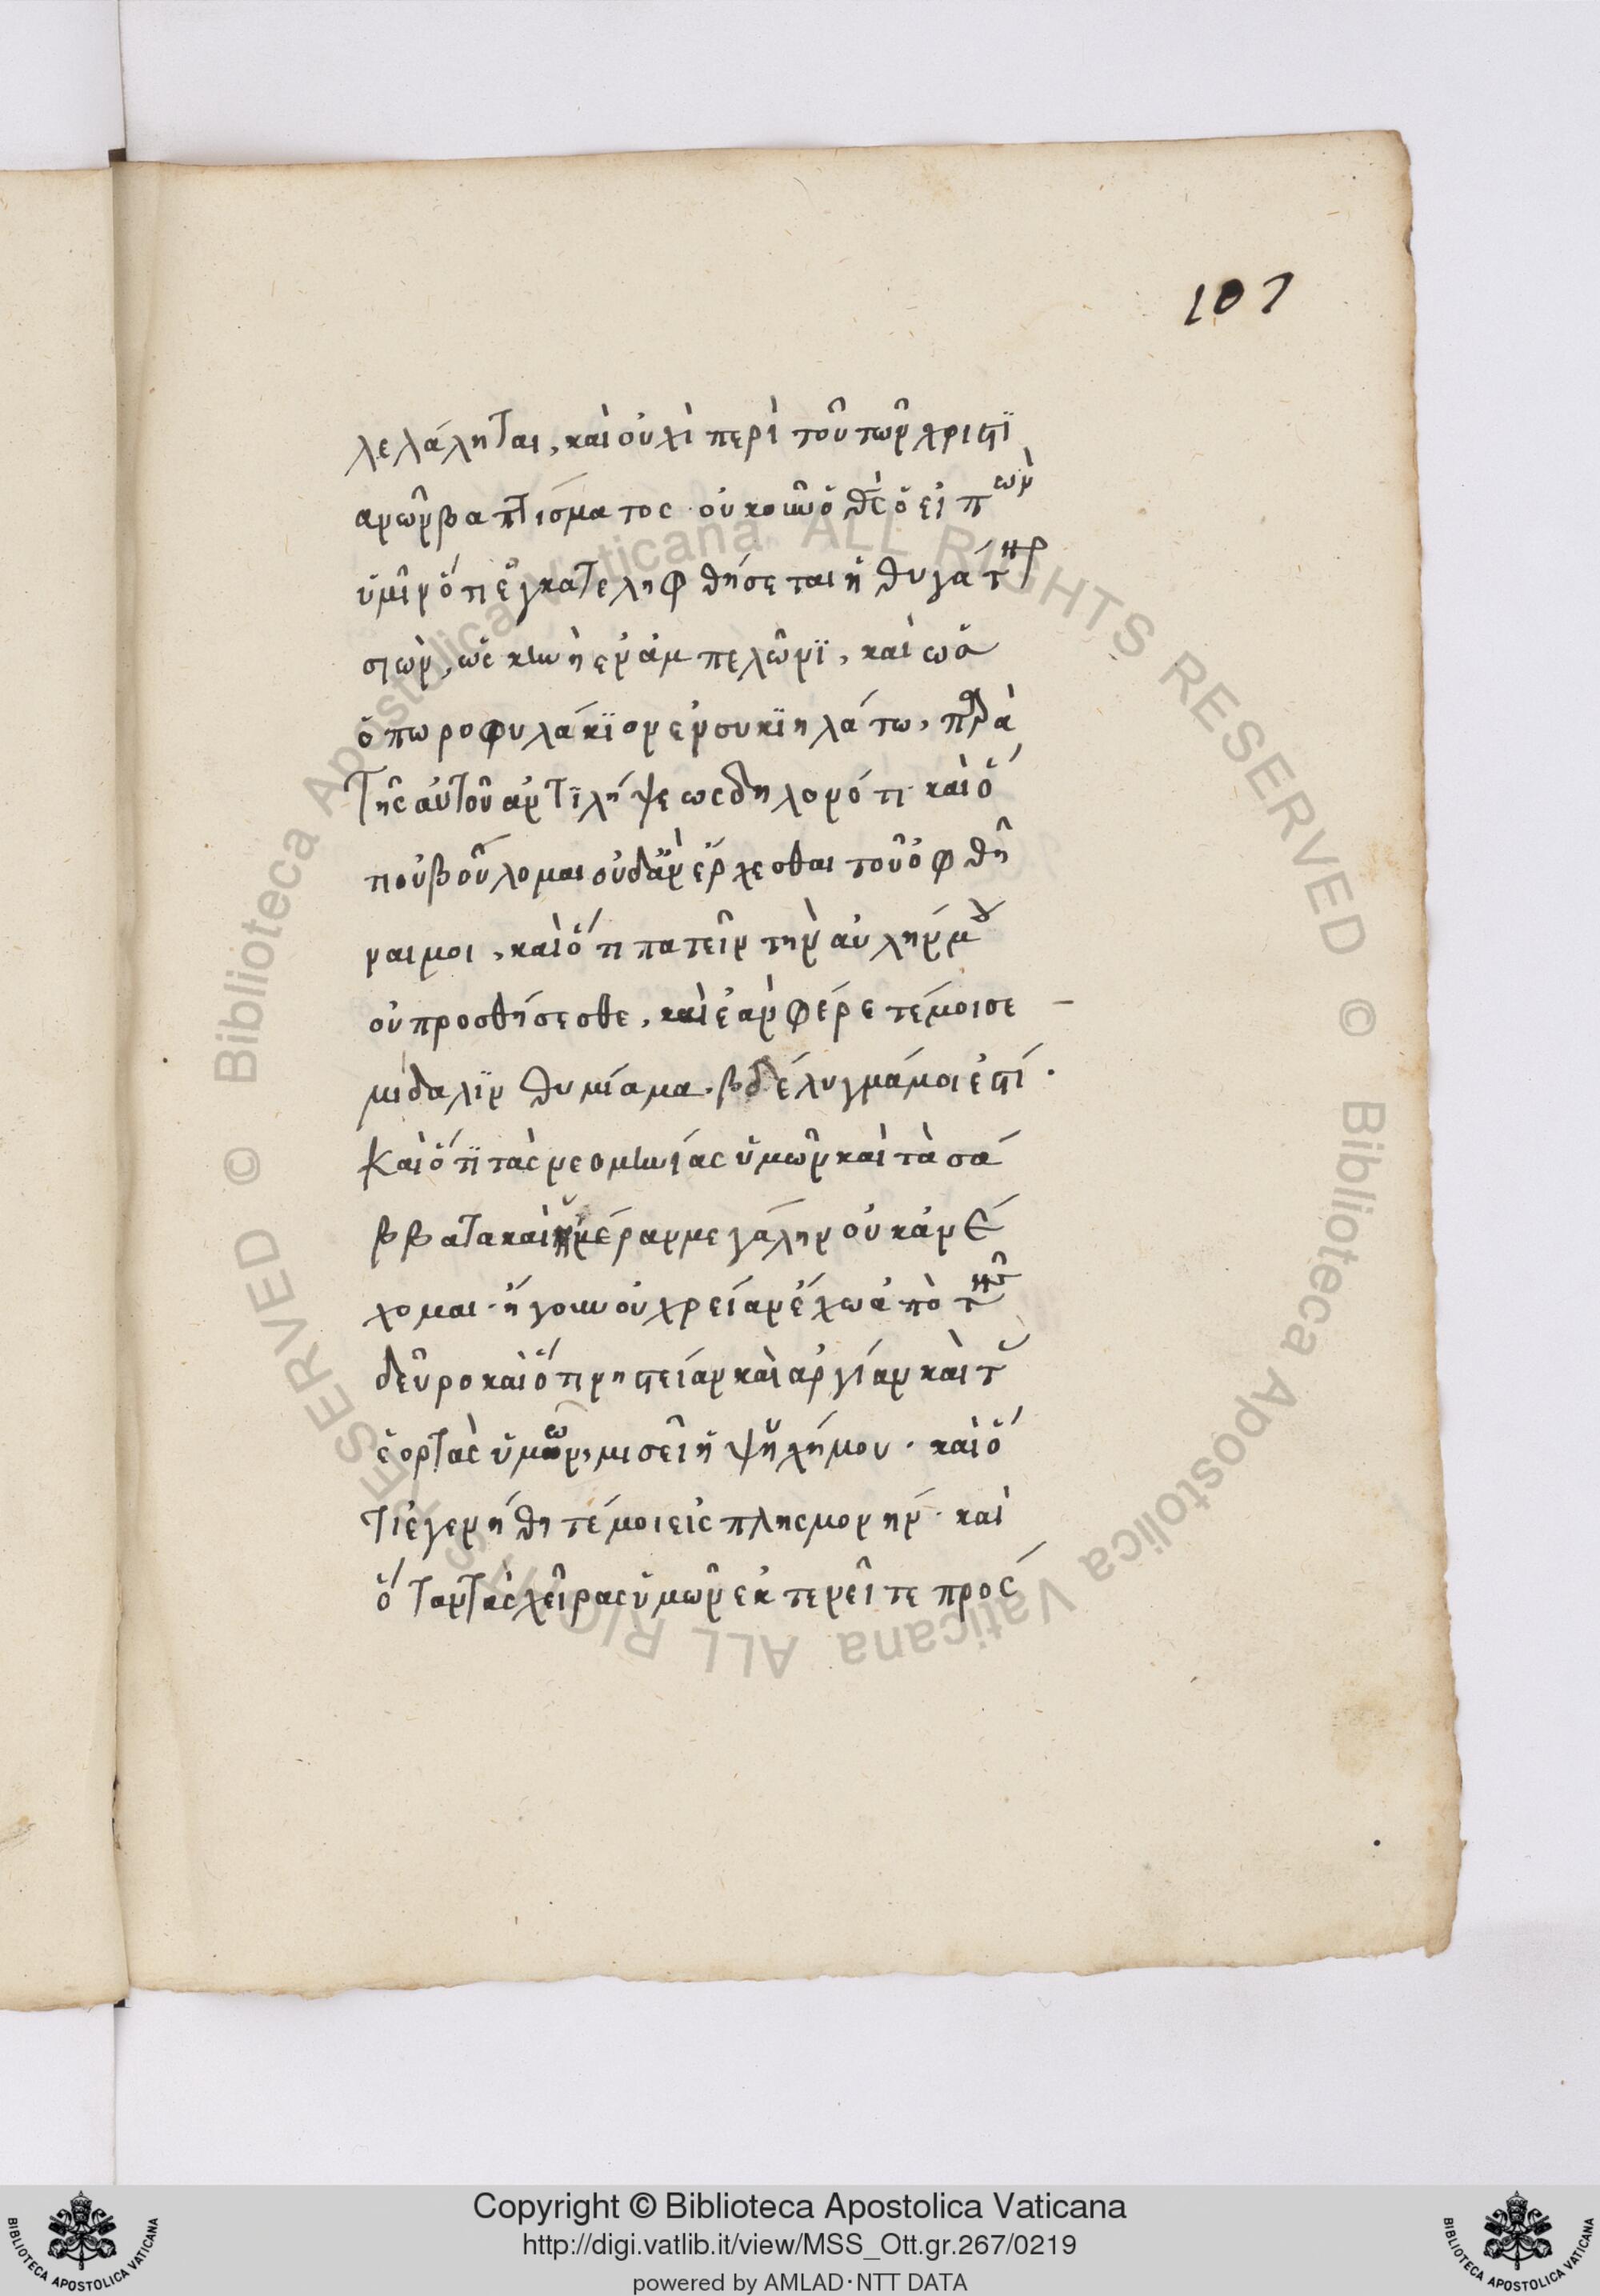 107
λελάληται, καὶ οὐχὶ περὶ τοῦ τῶν χριστϊ
ανῶν βαπτίσματος· οὐκοῦν ὁ θς ὁ εἰπὼν
ὑμῖν ὅτι ἐγκατελήφθήσεται ἡ θυγάτηρ
σιὼν, ὡς σκηνὴ ἐν ἀμπελῶνϊ, καὶ ὡς
ὀπωροφυλάκϊον ἐν συκϊηλάτω,
τῆς αὐτοῦ ἀντϊλήψεως δηλονότι· καὶ ὅ
τι οὐ βούλομαι οὐδ' ἂν ἔρχεσθαι τοῦ ὀφθῆ
ναι μοι, καὶ ὅτι πατεῖν τὴν αὐλήν μου
οὐ προσθήσεσθε, καὶ ἐὰν φέρετέ μοι σε
μίδαλϊν θυμίαμα· βδέλυγμά μοι ἐστί·
Καὶ ὅτϊ τὰς νεομηνίας ὑμῶν καὶ τὰ σά
ββατα καὶ ἡμέραν μεγάλην οὐκ ἀνέ
χομαι· ἤγουν οὐ χρείαν ἔχω ἀπὸ τῆς
δεῦρο καὶ ὅτι νηστείαν καὶ ἀργίαν καὶ τὰς
ἑορτὰς ὑμῶν, μισεῖ ἡ ψῡχή μου· καὶ ὅ
τι ἐγενήθητέ μοι εἰς πλησμονήν· καὶ
ὅταν τὰς χεῖρας ὑμῶν ἐκτενεῖτε πρός
Copyright © Biblioteca Apostolica Vaticana
http://digi.vatlib.it/view/MSS_Ott.gr.267/0219
powered by AMLAD·NTT DATA
BIBLIOTECA APOSTOLICA VATICANA
BIBLIOTECA APOSTOLICA VATICANA
© Biblioteca Apostolica Vaticana ALL RIGHTS RESERVED © Biblioteca Apostolica Vaticana ALL RIGHTS RESERVED